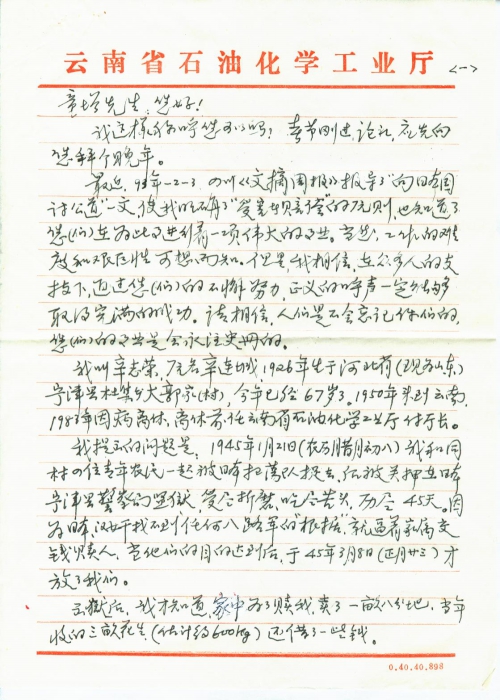 云南省石油化学工业厅
<一>
童增先生：您好！
我这样称呼您可以吗？春节刚过论礼，应先向
您拜个晚年。
最近，93年-2-3 四川《文摘周报》报导了"向日本国
讨公道"一文，使我明确了"受害赔偿"的原则，也知道了
您(们)在为此而进行着一项伟大的事业。当然，工作的难
度和艰巨性可想而知。但是，我相信，在众多人的支
持下，通过您(们)的不懈努力，正义的呼声一定能够
取得完满的成功。请相信，人们是不会忘记你们的，
您(们)的事业是会永注史册的。
我叫辛志荣，原名辛连城，1926年生于河北省(现为山东)
宁津县杜集乡大郭家(村)，今年已经67岁了，1950年来到云南，
1983年因病离休，离休前任云南省石油化学工业厅付厅长。
我提出的问题是，1945年1月21日(农历腊月初八)我和同
村四位青年农民一起被日军扫荡队捉去，后被关押在日军
宁津县警察的监狱，受尽折磨，吃尽苦头，历令45天。因
为日军、汉奸找不到任何八路军的"根据"，就逼着家属交
钱赎人，当他们的目的达到后，于45年3月8日(正月廿三)才
放了我们。
出狱后，我才知道，家中为了赎我，卖了一亩八分地，当年
收的三亩花生(估计约600kg)还借了一些钱。
0.40.40.898